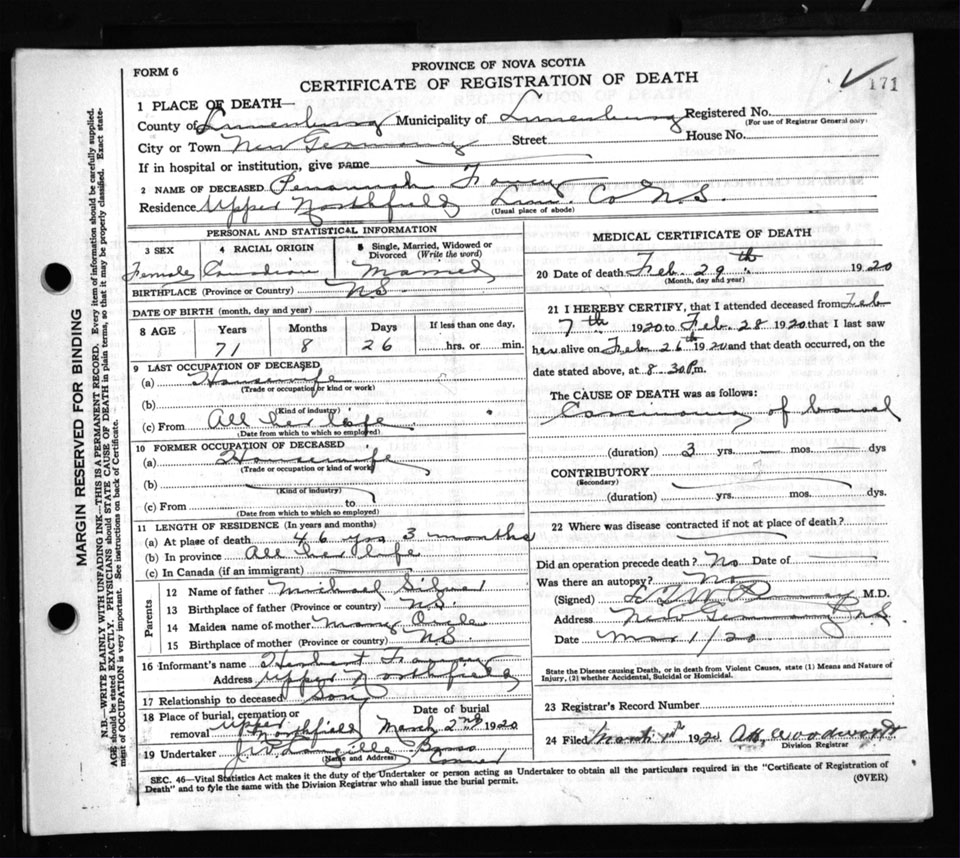 PROVINCE OF NOVA SCOTIA
FORM 6
CERTIFICATE OF REGISTRATION OF DEATH
171
1 PLACE OF DEATH—
County of Lunenburg Municipality of Lunenburg Registered No.
(For use of Registrar General only)
City or Town New Germany Street House No.
If in hospital or institution, give name
2 NAME OF DECEASED
Residence Upper Northfield Lun. Co N.S.
(Usual place of abode)
PERSONAL AND STATISTICAL INFORMATION
3 SEX 4 RACIAL ORIGIN 5 Single, Married, Widowed or Divorced (Write the word)
Female Canadian Married
BIRTHPLACE (Province or Country) N.S.
DATE OF BIRTH (month, day and year)
8 AGE Years Months Days If less than one day,
71 8 26 hrs. or min.
9 LAST OCCUPATION OF DECEASED
(a) Housewife
(Trade or occupation or kind of work)
(b)
(Kind of industry)
(c) From All her life
(Date from which to which so employed)
10 FORMER OCCUPATION OF DECEASED
(a) Housewife
(Trade or occupation or kind of work)
(b)
(Kind of industry)
(c) From to
(Date from which to which so employed)
11 LENGTH OF RESIDENCE (In years and months)
(a) At place of death 46 yrs 3 months
(b) In province All her life
(c) In Canada (if an immigrant)
Parents
12 Name of father Michael
13 Birthplace of father (Province or country) N.S.
14 Maiden name of mother Mary
15 Birthplace of mother (Province or country) N.S.
16 Informant's name Herbert
Address Upper Northfield
17 Relationship to deceased Son
18 Place of burial, cremation or removal Upper Northfield
Date of burial March 2nd 1920
19 Undertaker J.W. Langille
(Name and Address)
MEDICAL CERTIFICATE OF DEATH
20 Date of death Feb. 29th 1920
(Month, day and year)
21 I HEREBY CERTIFY, that I attended deceased from Feb
7th 1920 to Feb. 28 1920 that I last saw
her alive on Feb 26th 1920 and that death occurred, on the
date stated above, at 8.30 P.m.
The CAUSE OF DEATH was as follows:
Carcinoma of bowel
(duration) 3 yrs — mos. — dys
CONTRIBUTORY
(Secondary)
(duration) yrs. mos. dys.
22 Where was disease contracted if not at place of death?
Did an operation precede death? No Date of
Was there an autopsy? No
(Signed) M.D.
Address New Germany N.S.
Date Mar 1/20
State the Disease causing Death, or in death from Violent Causes, state (1) Means and Nature of Injury, (2) whether Accidental, Suicidal or Homicidal.
23 Registrar's Record Number
24 Filed March 1920
Division Registrar
SEC. 46—Vital Statistics Act makes it the duty of the Undertaker or person acting as Undertaker to obtain all the particulars required in the "Certificate of Registration of
Death" and to fyle the same with the Division Registrar who shall issue the burial permit. (OVER)
MARGIN RESERVED FOR BINDING
N.B.—WRITE PLAINLY WITH UNFADING INK—THIS IS A PERMANENT RECORD. Every item of information should be carefully supplied.
AGE should be stated EXACTLY. PHYSICIANS should STATE CAUSE OF DEATH in plain terms, so that it may be properly classified. Exact statement of OCCUPATION is very important. See instructions on back of Certificate.